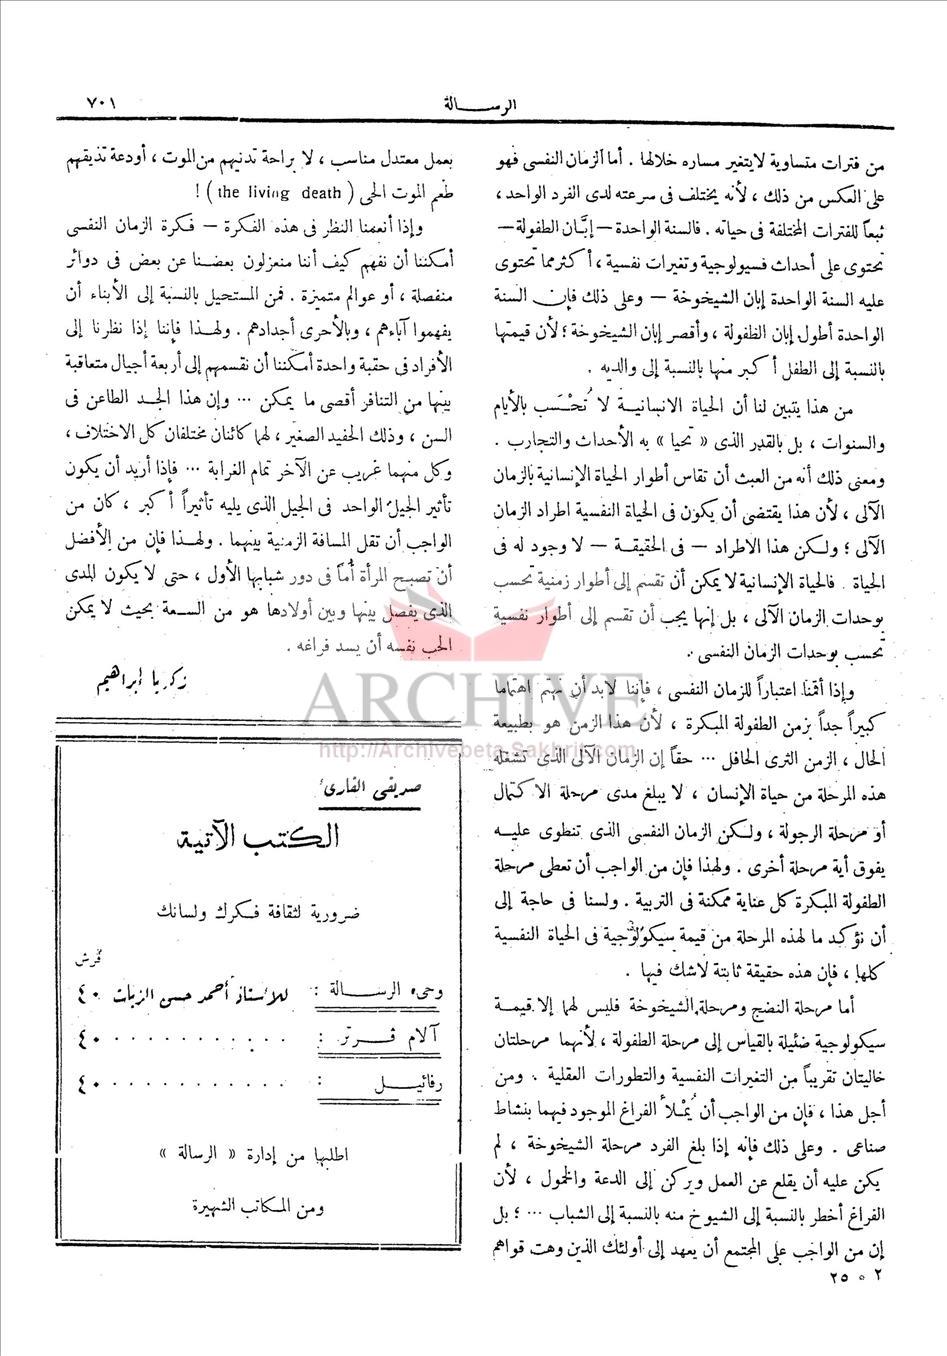 الرسالة
٧٠١
من فترات متساوية لا يتغير مساره خلالها . أما الزمان النفسى فهو
على العكس من ذلك ، لأنه يختلف فى سرعته لدى الفرد الواحد ،
تبعاً للفترات المختلفة فى حياته . فالسنة الواحدة — إبَّان الطفولة —
تحتوى على أحداث فسيولوجية وتغيرات نفسية ، أكثر مما تحتوى
عليه السنة الواحدة إبان الشيخوخة — وعلى ذلك فإن السنة
الواحدة أطول إبان الطفولة ، وأقصر إبان الشيخوخة ؛ لأن قيمتها
بالنسبة إلى الطفل أكبر منها بالنسبة إلى والديه .
من هذا يتبين لنا أن الحياة الانسانية لا تُحْسَب بالأيام
والسنوات ، بل بالقدر الذى « تحيا » به الأحداث والتجارب .
ومعنى ذلك أنه من العبث أن تقاس أطوار الحياة الإنسانية بالزمان
الآلى ، لأن هذا يقتضى أن يكون فى الحياة النفسية اطراد الزمان
الآلى ؛ ولكن هذا الاطراد — فى الحقيقة — لا وجود له فى
الحياة . فالحياة الإنسانية لا يمكن أن تقسم إلى أطوار زمنية تحسب
بوحدات الزمان الآلى ، بل إنها يجب أن تقسم إلى أطوار نفسية
تحسب بوحدات الزمان النفسى .
وإذا أقمنا اعتباراً للزمان النفسى ، فإننا لابد أن نهتم اهتماما
كبيراً جداً بزمن الطفولة المبكرة ، لأن هذا الزمن هو بطبيعة
الحال ، الزمن الثرى الحافل ... حقاً إن الزمان الآلى الذى تشغله
هذه المرحلة من حياة الإنسان ، لا يبلغ مدى مرحلة الاكتمال
أو مرحلة الرجولة ، ولكن الزمان النفسى الذى تنطوى عليه
يفوق أية مرحلة أخرى . ولهذا فإن من الواجب أن تعطى مرحلة
الطفولة المبكرة كل عناية ممكنة فى التربية . ولسنا فى حاجة إلى
أن نؤكد ما لهذه المرحلة من قيمة سيكولوجية فى الحياة النفسية
كلها ، فإن هذه حقيقة ثابتة لا شك فيها .
أما مرحلة النضج ومرحلة الشيخوخة فليس لهما إلا قيمة
سيكولوجية ضئيلة بالقياس إلى مرحلة الطفولة ، لأنهما مرحلتان
خاليتان تقريباً من التغيرات النفسية والتطورات العقلية . ومن
أجل هذا ، فإن من الواجب أن يُمْلأ الفراغ الموجود فيهما بنشاط
صناعى . وعلى ذلك فإنه إذا بلغ الفرد مرحلة الشيخوخة ، لم
يكن عليه أن يقلع عن العمل ويركن إلى الدعة والخمول ، لأن
الفراغ أخطر بالنسبة إلى الشيوخ منه بالنسبة إلى الشباب ... ؛ بل
إن من الواجب على المجتمع أن يعهد إلى أولئك الذين وهت قواهم
٢ ٥ ٢٥
بعمل معتدل مناسب ، لا براحة تدنيهم من الموت ، أو دعة تذيقهم
طعم الموت الحى ( the living death ) !
وإذا أنعمنا النظر فى هذه الفكرة — فكرة الزمان النفسى
أمكننا أن نفهم كيف أننا منعزلون بعضنا عن بعض فى دوائر
منفصلة ، أو عوالم متميزة . فمن المستحيل بالنسبة إلى الأبناء أن
يفهموا آباءهم ، وبالأحرى أجدادهم . ولهذا فإننا إذا نظرنا إلى
الأفراد فى حقبة واحدة أمكننا أن نقسمهم إلى أربعة أجيال متعاقبة
بينها من التنافر أقصى ما يمكن ... وإن هذا الجد الطاعن فى
السن ، وذلك الحفيد الصغير ، لهما كائنان مختلفان كل الاختلاف ،
وكل منهما غريب عن الآخر تمام الغرابة ... فإذا أريد أن يكون
تأثير الجيل الواحد فى الجيل الذى يليه تأثيراً أكبر ، كان من
الواجب أن تقل المسافة الزمنية بينهما . ولهذا فإن من الأفضل
أن تصبح المرأة أُمّاً فى دور شبابها الأول ، حتى لا يكون المدى
الذى يفصل بينها وبين أولادها هو من السعة بحيث لا يمكن
الحب نفسه أن يسد فراغه .
زكريا إبراهيم
ARCHIVE
http://Archivebeta.Sakhrit.com
صديقى القارئ
الكتب الآتية
ضرورية لثقافة فكرك ولسانك
قرش
وحى الرسالة : للأستاذ أحمد حسن الزيات ٤٠
آلام فرتر : . . . . . . . . . . ٤٠
رفائيل : . . . . . . . . . . ٤٠
اطلبها من إدارة « الرسالة »
ومن المكاتب الشهيرة